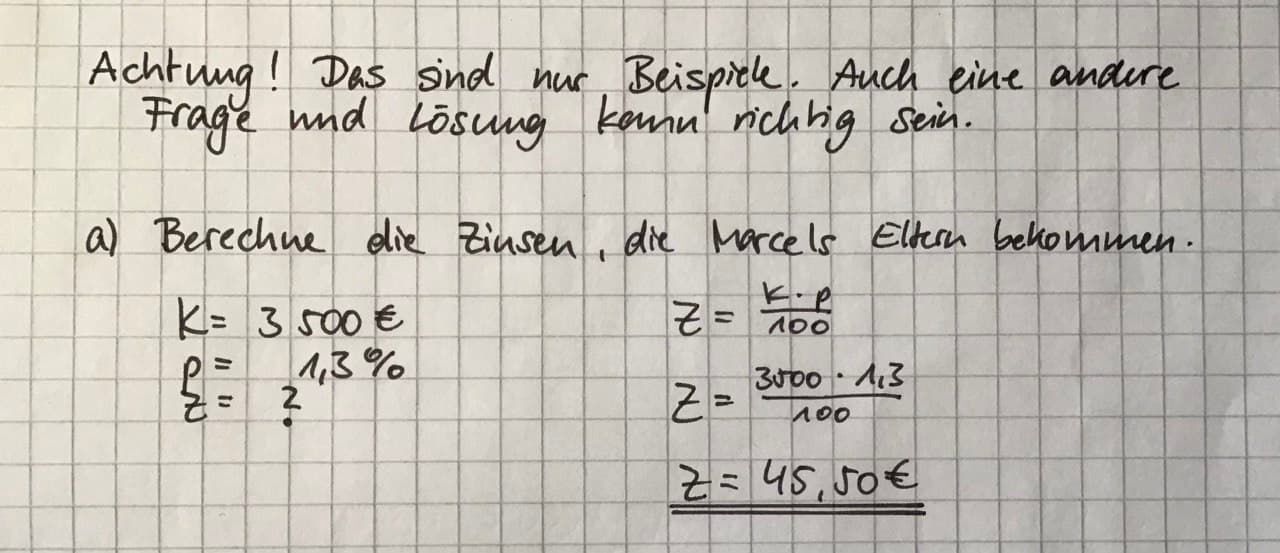 Achtung! Das sind nur Beispiele. Auch eine andere
Frage und Lösung kann richtig sein.
a) Berechne die Zinsen, die Marcels Eltern bekommen.
K = 3 500 € Z = K · p / 100
p = 1,3 % Z = 3500 · 1,3 / 100
Z = ?
Z = 45,50 €